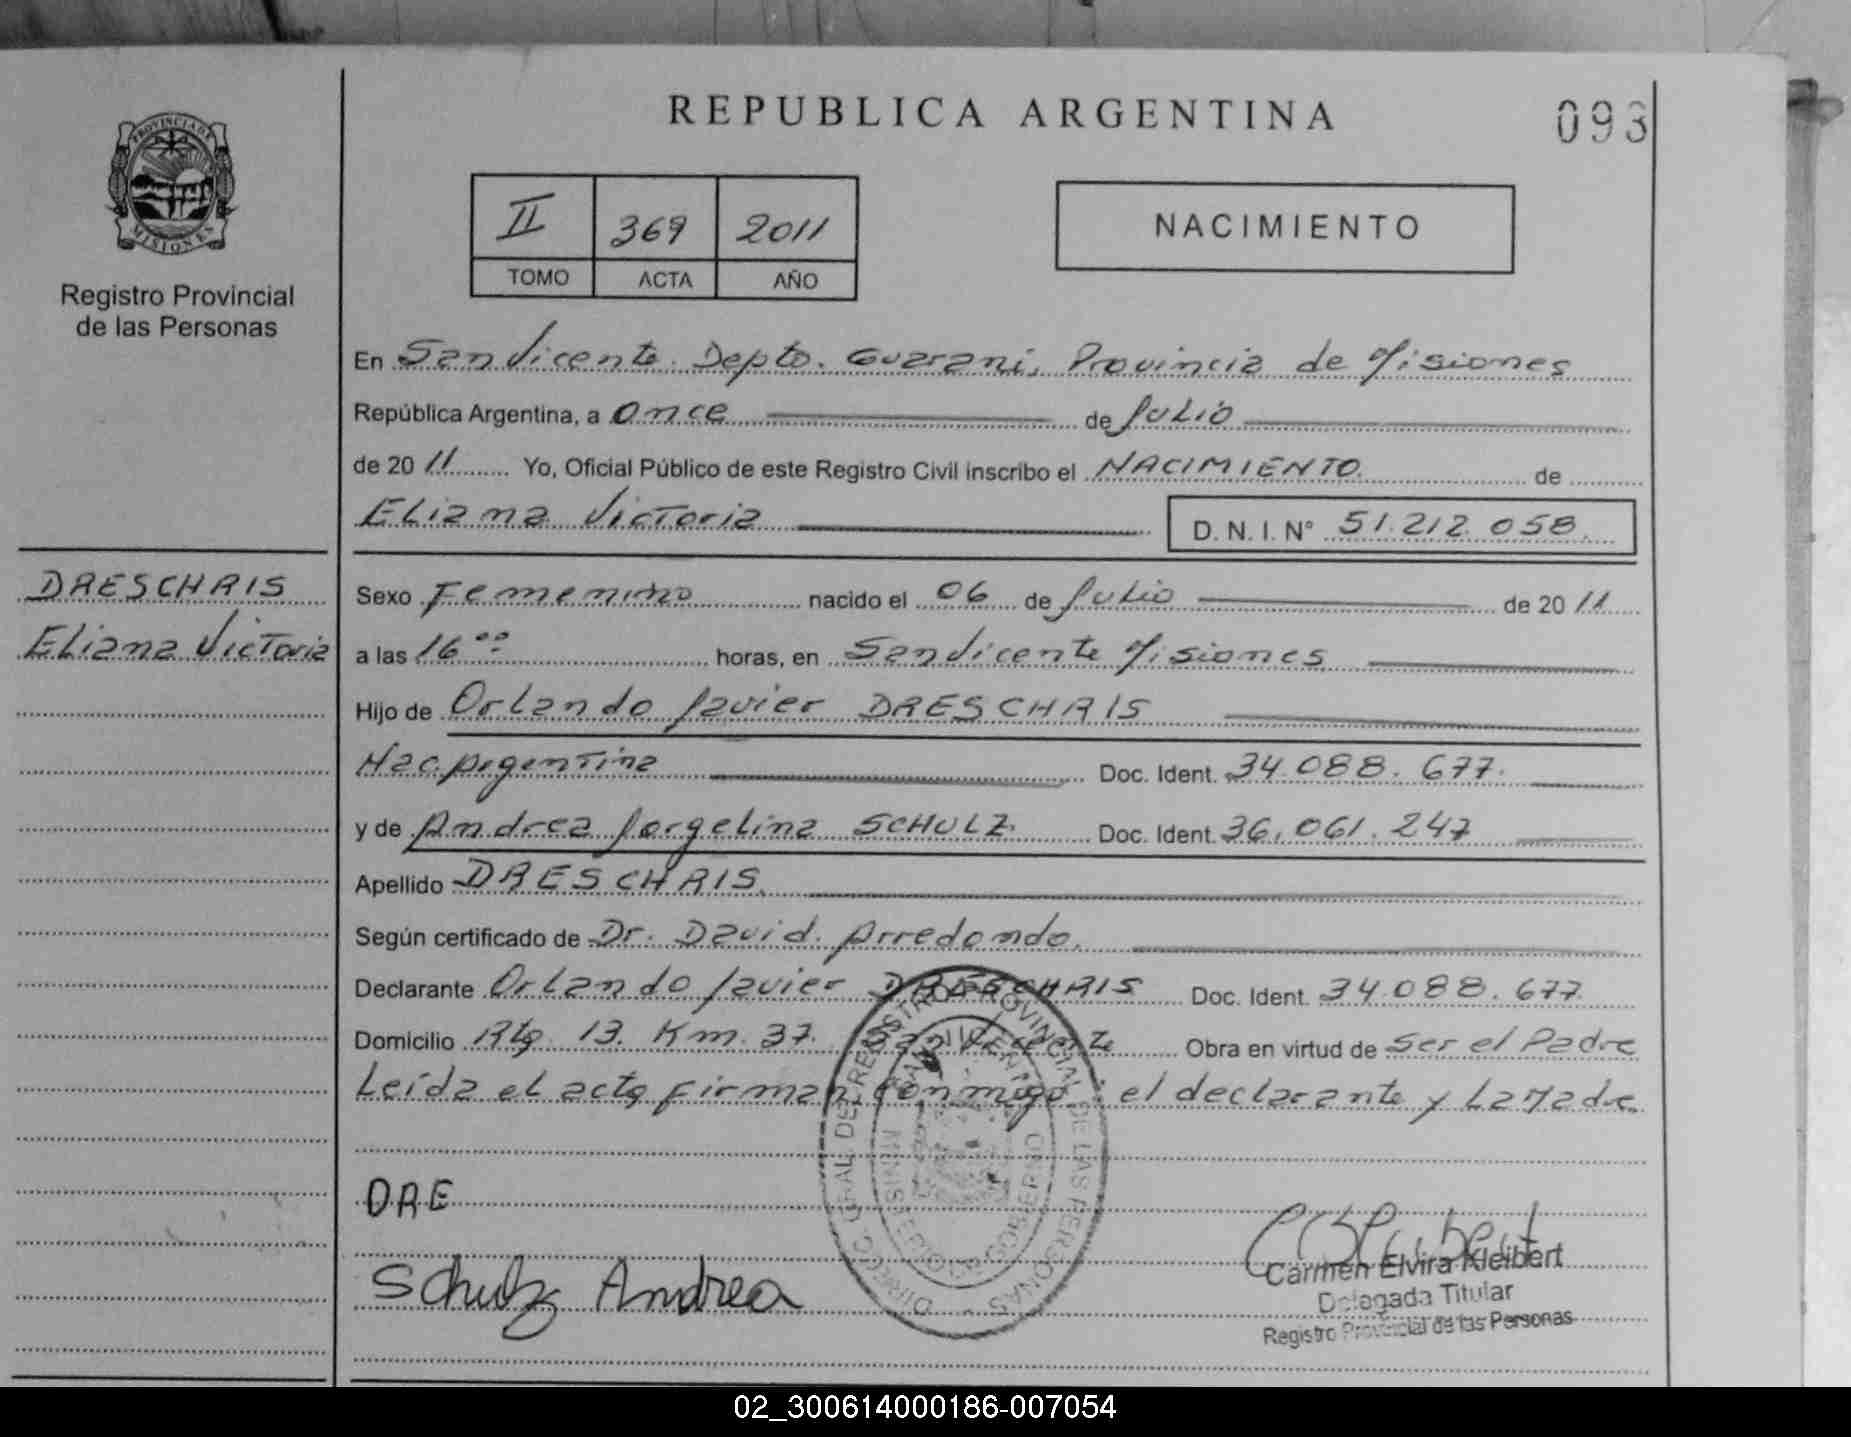 REPUBLICA ARGENTINA
093
PROVINCIA DE
MISIONES
Registro Provincial
de las Personas
II 369 2011
TOMO ACTA AÑO
NACIMIENTO
En San Vicente. Depto. Guarani, Provincia de Misiones
República Argentina, a Once de Julio
de 20 11 Yo, Oficial Público de este Registro Civil inscribo el NACIMIENTO de
Eliana Victoria D. N. I. N° 51.212.058.
DRESCHRIS
Eliana Victoria
Sexo Femenino nacido el 06 de Julio de 20 11
a las 16 00 horas, en San Vicente Misiones
Hijo de Orlando Javier DRESCHRIS
Nac. Argentina Doc. Ident. 34.088.677.
y de Andrea Jorgelina SCHULZ. Doc. Ident. 36.061.247
Apellido DRESCHRIS.
Según certificado de Dr. David. Arredondo.
Declarante Orlando Javier DRESCHRIS Doc. Ident. 34.088.677
Domicilio Rta. 13. Km. 37. San Vicente Obra en virtud de Ser el Padre
Leída el acta firman conmigo: el declarante y La Madre
DIRECC. GRAL. DEL REGISTRO PROVINCIAL DE LAS PERSONAS
SAN VICENTE
MINISTERIO DE GOBIERNO
DRE
Schulz Andrea
Carmen Elvira Kleibert
Delegada Titular
Registro Provincial de las Personas
02_300614000186-007054